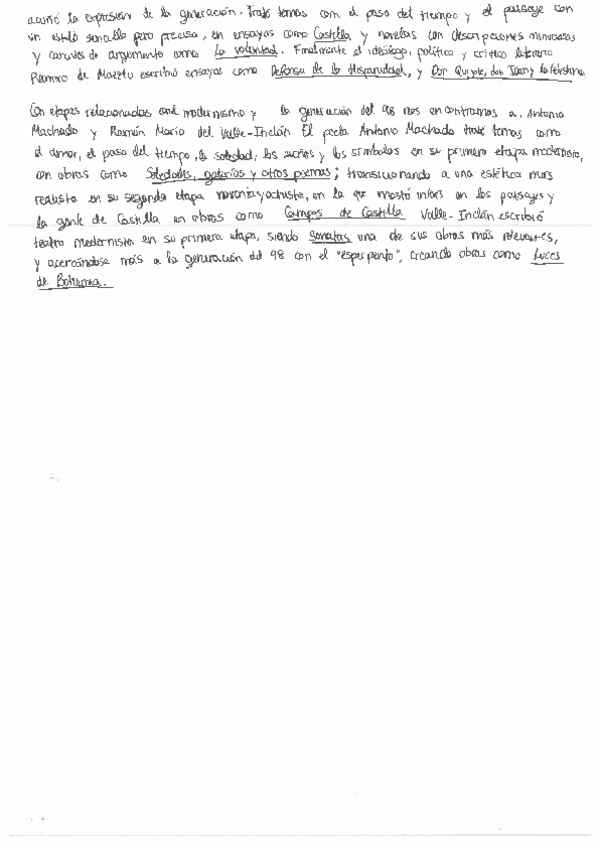 acuñó la expresión de la generación. Trató temas com el paso del tiempo y el paisaje con
un estilo sencillo pero preciso, en ensayos como Castilla y novelas con descripciones minuciosas
y carentes de argumento como La voluntad. Finalmente el ideólogo, político y crítico literario
Ramiro de Maeztu escribió ensayos como Defensa de la Hispanidad, y Don Quijote, don Juan y La Celestina.
Con etapas relacionadas modernismo y la generación del 98 nos encontramos a, Antonio
Machado y Ramón María del Valle-Inclán. El poeta Antonio Machado trató temas como
el amor, el paso del tiempo, la soledad, los sueños y los símbolos en su primera etapa modernista,
con obras como Soledades, galerías y otros poemas; transicionando a una estética mas
realista en su segunda etapa noventayochista, en la que mostó interés en los paisajes y
la gente de Castilla en obras como Campos de Castilla. Valle-Inclán escribió
teatro modernista en su primera etapa, siendo Sonatas una de sus obras más relevantes,
y acercándose más a la generación del 98 con el "esperpento", creando obras como Luces
de Bohemia.